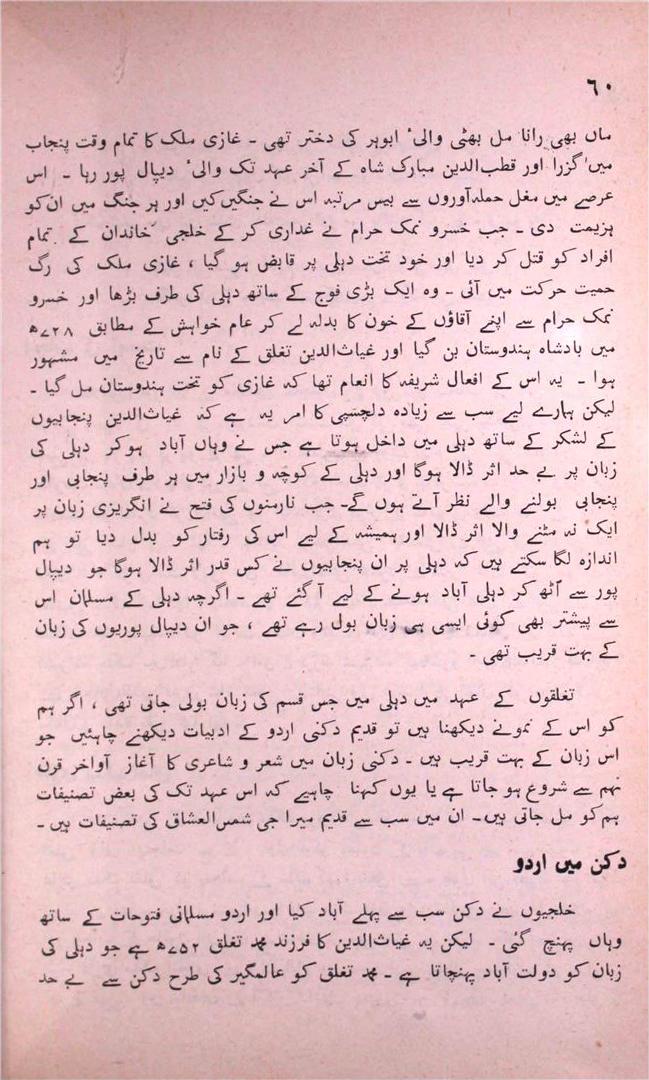 ٦٠
ماں بھی رانا مل بھٹی والیٔ ابوہر کی دختر تھی ۔ غازی ملک کا تمام وقت پنجاب
میں گزرا اور قطب‌الدین مبارک شاہ کے آخر عہد تک والیٔ دیپال پور رہا ۔ اس
عرصے میں مغل حملہ‌آوروں سے بیس مرتبہ اس نے جنگیں کیں اور ہر جنگ میں ان کو
ہزیمت دی ۔ جب خسرو نمک حرام نے غداری کر کے خلجی خاندان کے تمام
افراد کو قتل کر دیا اور خود تخت دہلی پر قابض ہو گیا ، غازی ملک کی رگ
حمیت حرکت میں آئی ۔ وہ ایک بڑی فوج کے ساتھ دہلی کی طرف بڑھا اور خسرو
نمک حرام سے اپنے آقاؤں کے خون کا بدلہ لے کر عام خواہش کے مطابق ۷۲۸ھ
میں بادشاہ ہندوستان بن گیا اور غیاث‌الدین تغلق کے نام سے تاریخ میں مشہور
ہوا ۔ یہ اس کے افعال شریفہ کا انعام تھا کہ غازی کو تخت ہندوستان مل گیا ۔
لیکن ہمارے لیے سب سے زیادہ دلچسپی کا امر یہ ہے کہ غیاث‌الدین پنجابیوں
کے لشکر کے ساتھ دہلی میں داخل ہوتا ہے جس نے وہاں آباد ہوکر دہلی کی
زبان پر بے حد اثر ڈالا ہوگا اور دہلی کے کوچہ و بازار میں ہر طرف پنجابی اور
پنجابی بولنے والے نظر آتے ہوں گے۔ جب نارمنوں کی فتح نے انگریزی زبان پر
ایک نہ مٹنے والا اثر ڈالا اور ہمیشہ کے لیے اس کی رفتار کو بدل دیا تو ہم
اندازہ لگا سکتے ہیں کہ دہلی پر ان پنجابیوں نے کس قدر اثر ڈالا ہوگا جو دیپال
پور سے اُٹھ کر دہلی آباد ہونے کے لیے آ گئے تھے ۔ اگرچہ دہلی کے مسلمان اس
سے پیشتر بھی کوئی ایسی ہی زبان بول رہے تھے ، جو ان دیپال پوریوں کی زبان
کے بہت قریب تھی ۔
تغلقوں کے عہد میں دہلی میں جس قسم کی زبان بولی جاتی تھی ، اگر ہم
کو اس کے نمونے دیکھنا ہیں تو قدیم دکنی اردو کے ادبیات دیکھنے چاہئیں جو
اس زبان کے بہت قریب ہیں ۔ دکنی زبان میں شعر و شاعری کا آغاز آواخر قرن
نہم سے شروع ہو جاتا ہے یا یوں کہنا چاہیے کہ اس عہد تک کی بعض تصنیفات
ہم کو مل جاتی ہیں۔ ان میں سب سے قدیم میرا جی شمس‌العشاق کی تصنیفات ہیں ۔
دکن میں اردو
خلجیوں نے دکن سب سے پہلے آباد کیا اور اردو مسلمانی فتوحات کے ساتھ
وہاں پہنچ گئی ۔ لیکن یہ غیاث‌الدین کا فرزند محمد تغلق ۷۵۲ھ ہے جو دہلی کی
زبان کو دولت آباد پہنچاتا ہے ۔ محمد تغلق کو عالمگیر کی طرح دکن سے بے حد